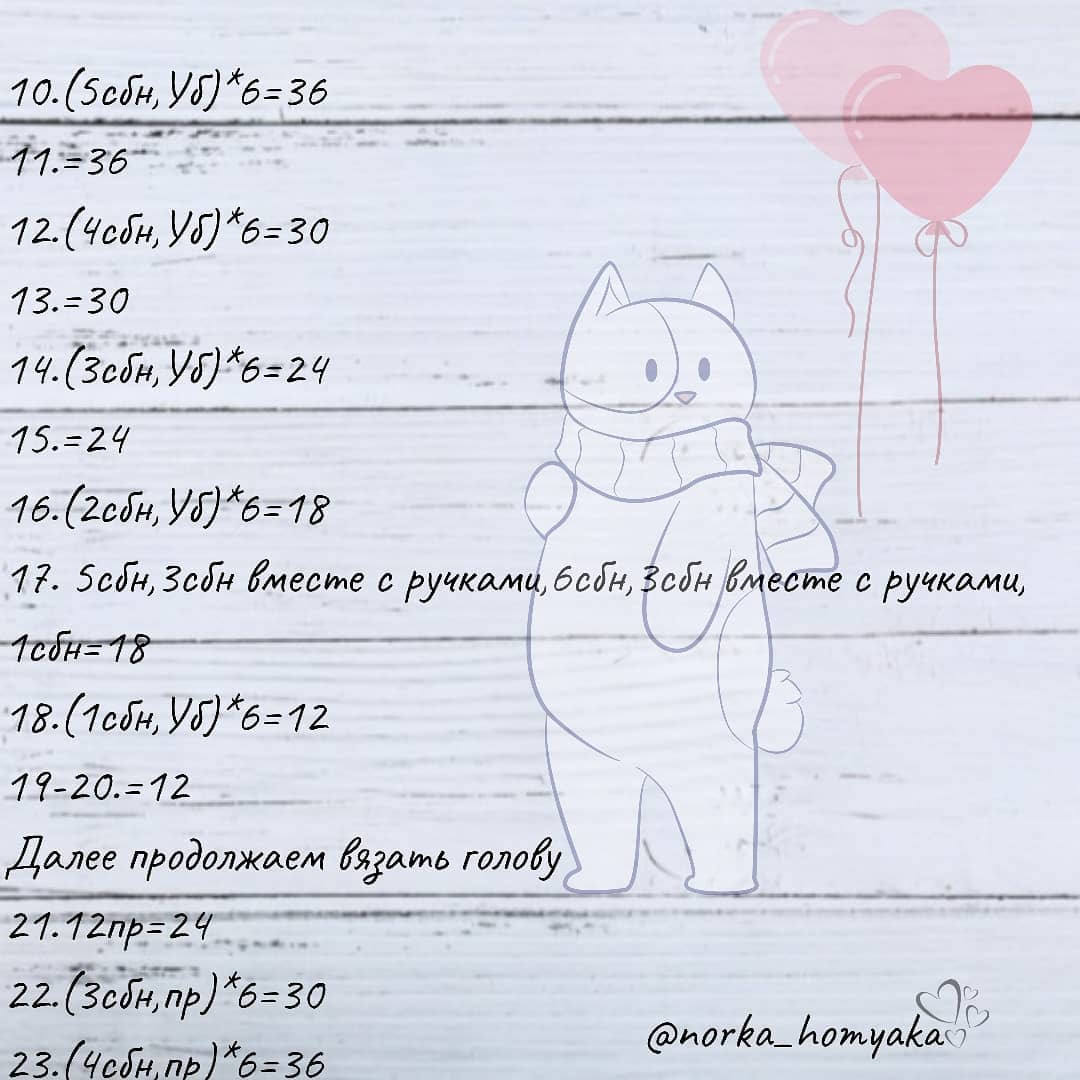 10.(5сбн,Уб)*6=36
11.=36
12.(4сбн,Уб)*6=30
13.=30
14.(3сбн,Уб)*6=24
15.=24
16.(2сбн,Уб)*6=18
17. 5сбн,3сбн вместе с ручками,6сбн,3сбн вместе с ручками,
1сбн=18
18.(1сбн,Уб)*6=12
19-20.=12
Далее продолжаем вязать голову
21.12пр=24
22.(3сбн,пр)*6=30
23.(4сбн,пр)*6=36
@norka_homyaka